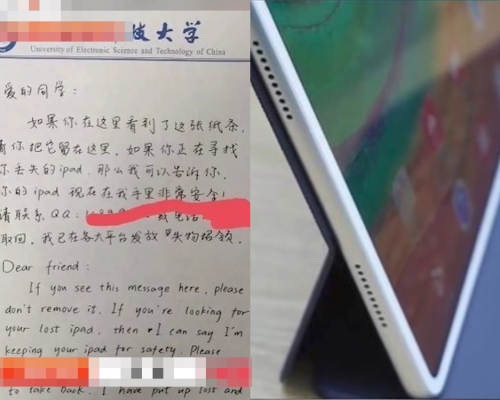 技大学
University of Electronic Science and Technology of China
爱的同学：
如果你在这里看到了这张纸条，
请你把它留在这里。如果你正在寻找
你丢失的ipad，那么我可以告诉你，
你的ipad 现在在我手里非常安全！
请联系QQ：
取回。我已在各大平台发放“失物招领
Dear friend:
If you see this message here, please
don't remove it. If you're looking for
your lost ipad, then I can say I'm
keeping your ipad for safety. Please
to take back. I have put up lost and